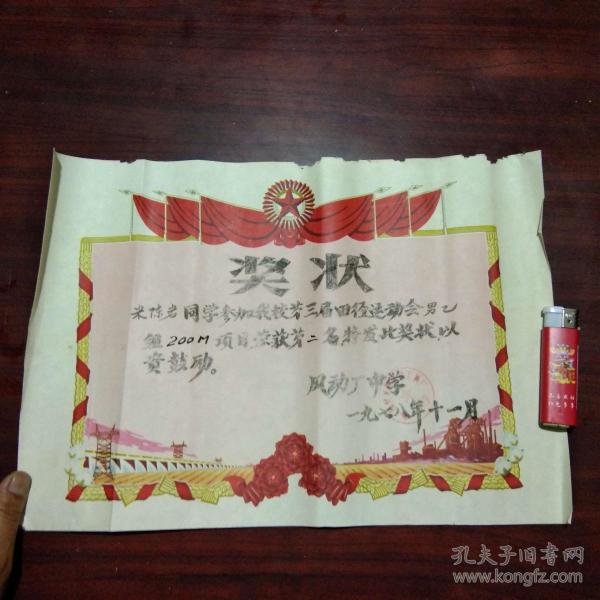 奖状
米陈岩同学参加我校芳三届田径运动会男乙
组200M项目荣获芳二名特发此奖状,以
资鼓励。
风动厂中学
一九七八年十一月
孔夫子旧书网
www.kongfz.com